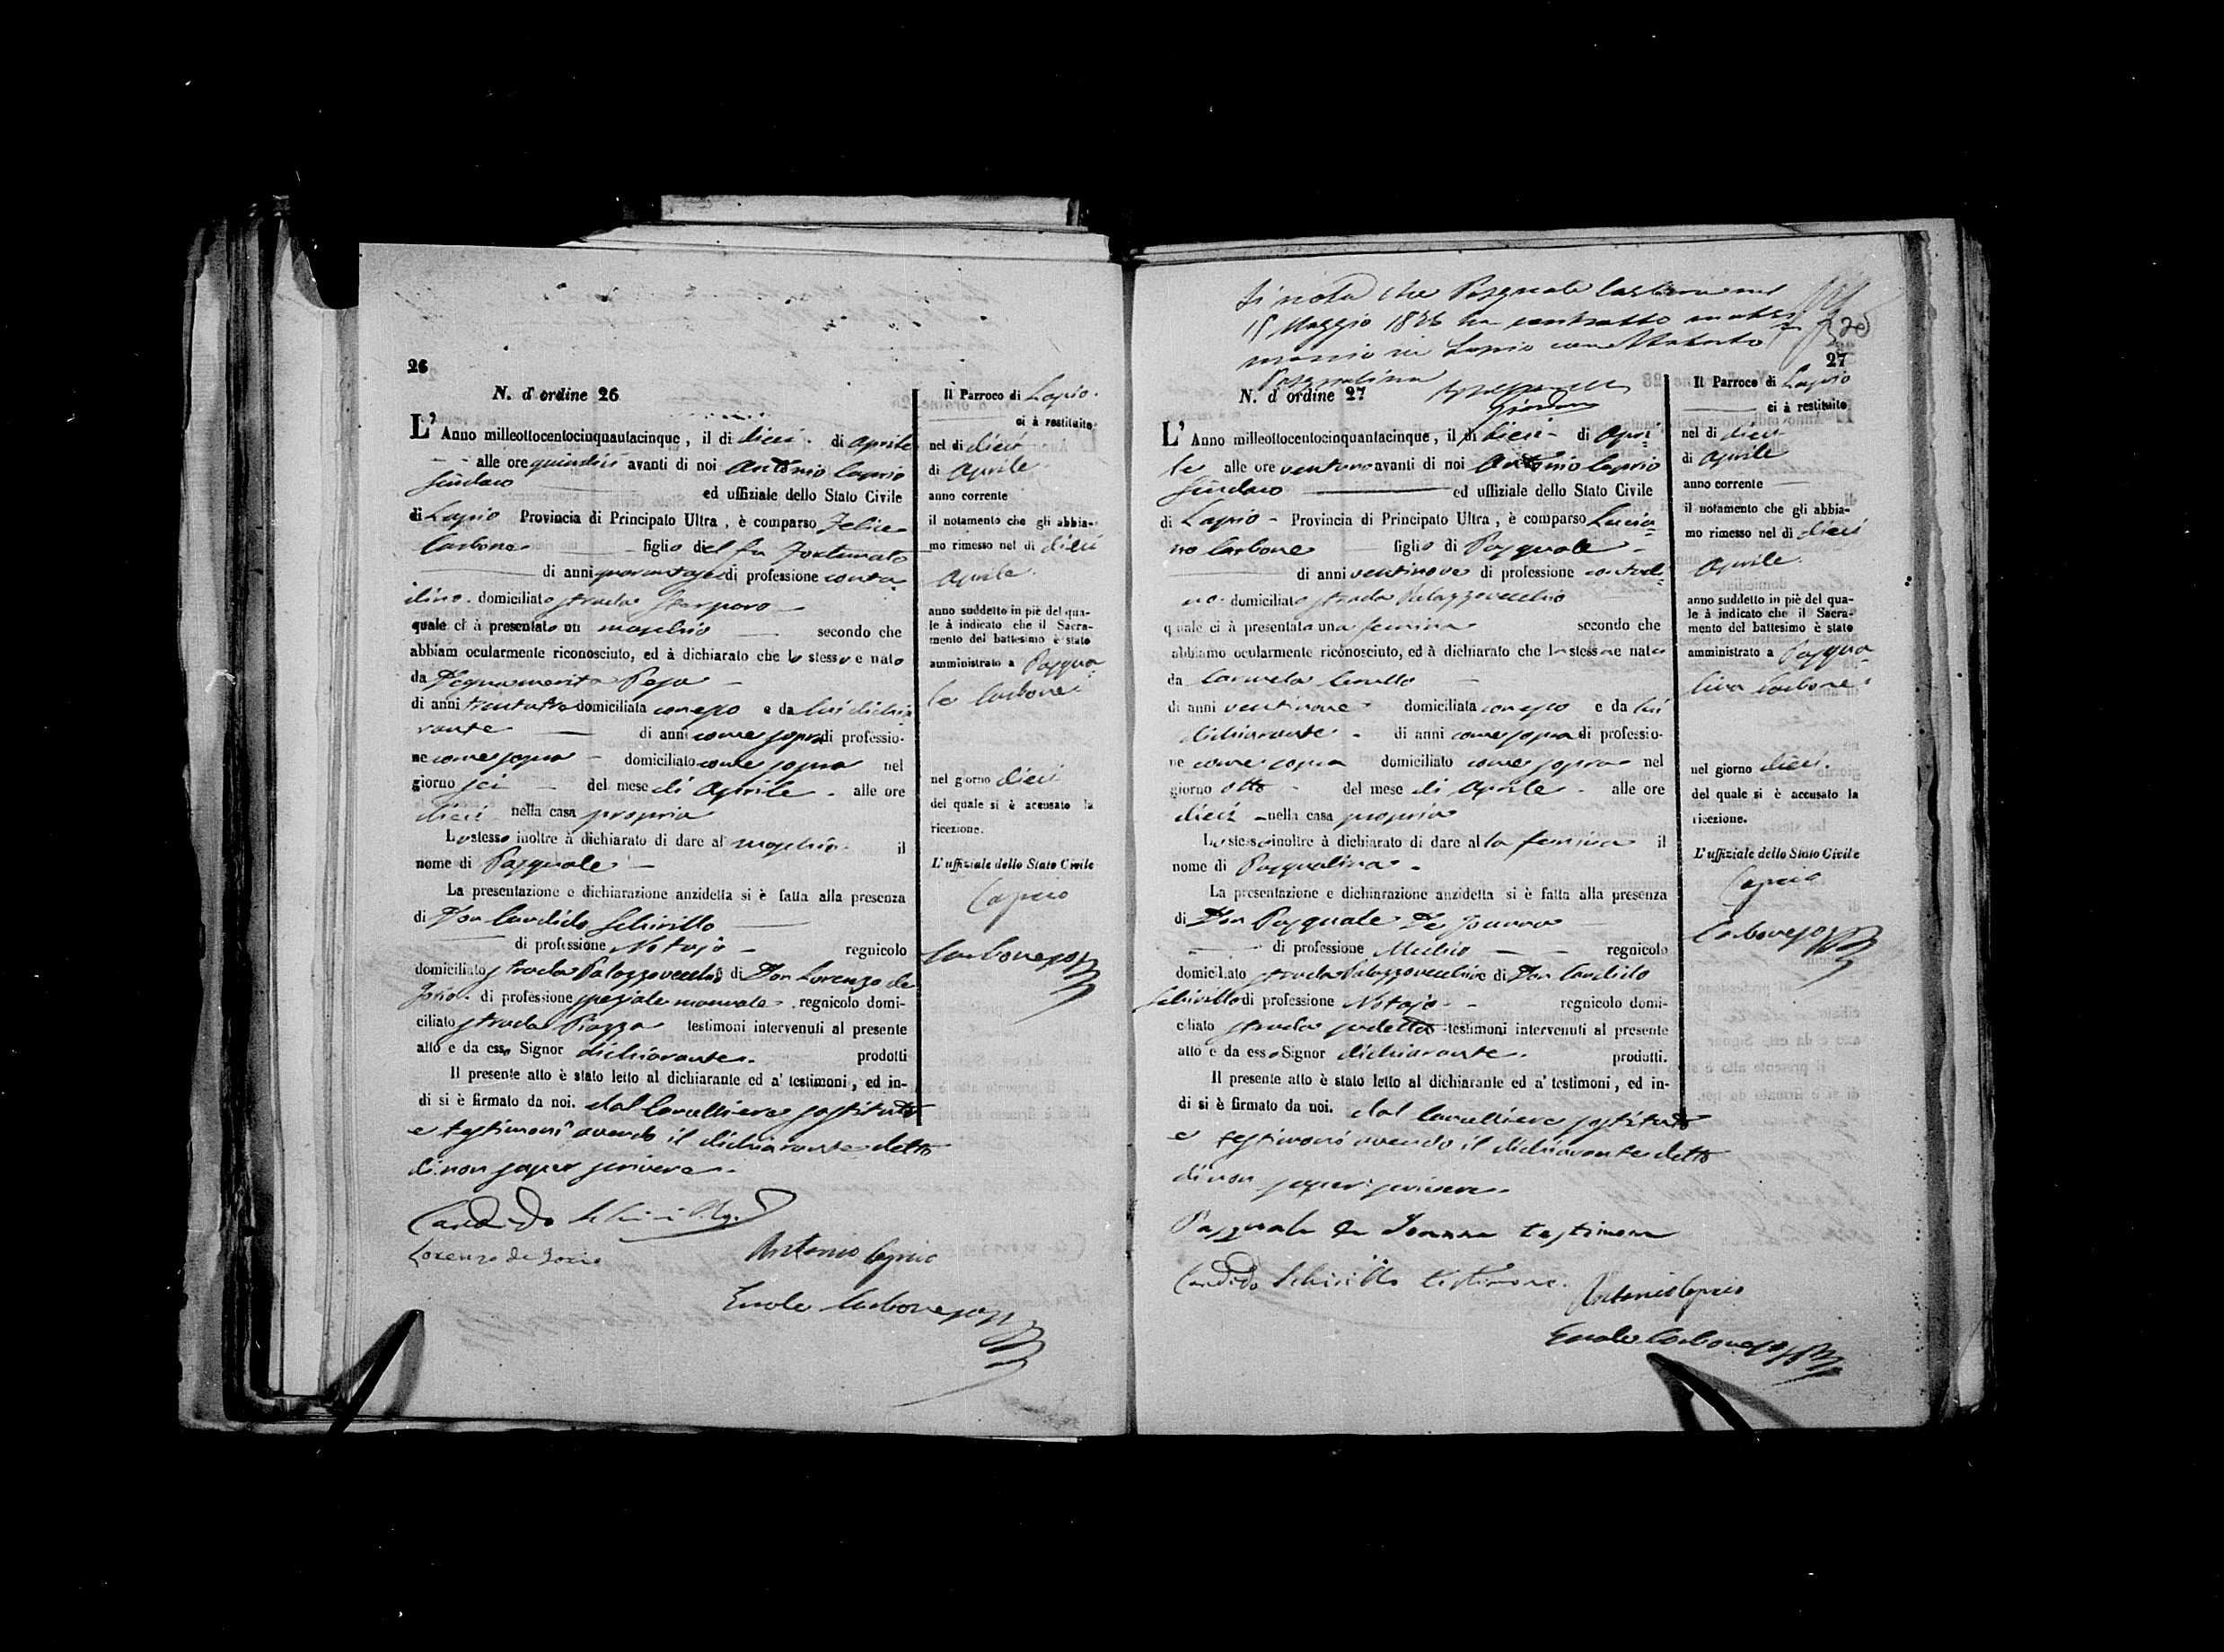 26
N. d'ordine 26
L'Anno millottocentocinquantacinque, il dì dieci di Aprile
alle ore quindici avanti di noi Antonio Caprio
Sindaco ed uffiziale dello Stato Civile
di Lapio Provincia di Principato Ultra, è comparso Felice
Carbone figlio del fu Fortunato
di anni quarantasei di professione conta-
dino domiciliato strada
quale ci à presentato un maschio secondo che
abbiam ocularmente riconosciuto, ed à dichiarato che lo stesso e nato
da Degnamerita Pepa
di anni trentatre domiciliata con esso e da lui dichia
rante di anni come sopra di professio-
ne come sopra domiciliato come sopra nel
giorno sei del mese di Aprile alle ore
dieci nella casa propria
Lo stesso inoltre à dichiarato di dare al maschio il
nome di Pasquale
La presentazione e dichiarazione anzidetta si è fatta alla presenza
di Don Candido Schirillo
di professione Notajo regnicolo
domiciliato strada Palazzovecchio di Don Lorenzo de
Jorio di professione speziale manuale regnicolo domi-
ciliato strada Piazza testimoni intervenuti al presente
atto e da esso Signor dichiarante prodotti
Il presente atto è stato letto al dichiarante ed a' testimoni, ed in-
di si è firmato da noi. dal Cancelliere sostituto
e testimoni avendo il dichiarante detto
di non saper scrivere
Candido Schirillo
Lorenzo de Jorio
Antonio Caprio
Carbone
Il Parroco di Lapio
ci à restituito
nel dì dieci
di Aprile
anno corrente
il notamento che gli abbia-
mo rimesso nel dì dieci
Aprile
anno suddetto in piè del qua-
le à indicato che il Sacra-
mento del battesimo è stato
amministrato a Pasqua
le Carbone
nel giorno dieci
del quale si è accusato la
ricezione.
L'uffiziale dello Stato Civile
Caprio
Carbone
Si nota che Pasquale Carbone nel
15 Maggio 18 ha contratto matri
monio in Lapio con
Pasqualina
27
N. d'ordine 27
L'Anno milleottocentocinquantacinque, il dì dieci di Apri
le alle ore ventuno avanti di noi Antonio Caprio
Sindaco ed uffiziale dello Stato Civile
di Lapio Provincia di Principato Ultra, è comparso Lucia
no Carbone figlio di Pasquale
di anni ventinove di professione contadi
no domiciliato strada Palazzovecchio
quale ci à presentata una femina secondo che
abbiamo ocularmente riconosciuto, ed à dichiarato che la stessa e nata
da Carmela
di anni ventinove domiciliata con esso e da lui
dichiarante di anni come sopra di professio-
ne come sopra domiciliato come sopra nel
giorno otto del mese di Aprile alle ore
dieci nella casa propria
Lo stesso inoltre à dichiarato di dare alla femina il
nome di Pasqualina
La presentazione e dichiarazione anzidetta si è fatta alla presenza
di Don Pasquale De Joanna
di professione Medico regnicolo
domiciliato strada Palazzovecchio e di Don Candido
Schirillo di professione Notajo regnicolo domi-
ciliato strada sudetta testimoni intervenuti al presente
atto e da esso Signor dichiarante prodotti.
Il presente atto è stato letto al dichiarante ed a' testimoni, ed in-
di si è firmato da noi. dal Cancelliere sostituto
e testimoni avendo il dichiarante detto
di non saper scrivere
Pasquale de Joanna testimone
Candido Schirillo testimone.
Antonio Caprio
Carbone
Il Parroco di Lapio
ci à restituito
nel dì dieci
di Aprile
anno corrente
il notamento che gli abbia-
mo rimesso nel dì dieci
Aprile
anno suddetto in piè del qua-
le à indicato che il Sacra-
mento del battesimo è stato
amministrato a Pasqua-
lina Carbone
nel giorno dieci
del quale si è accusato la
ricezione.
L'uffiziale dello Stato Civile
Caprio
Carbone